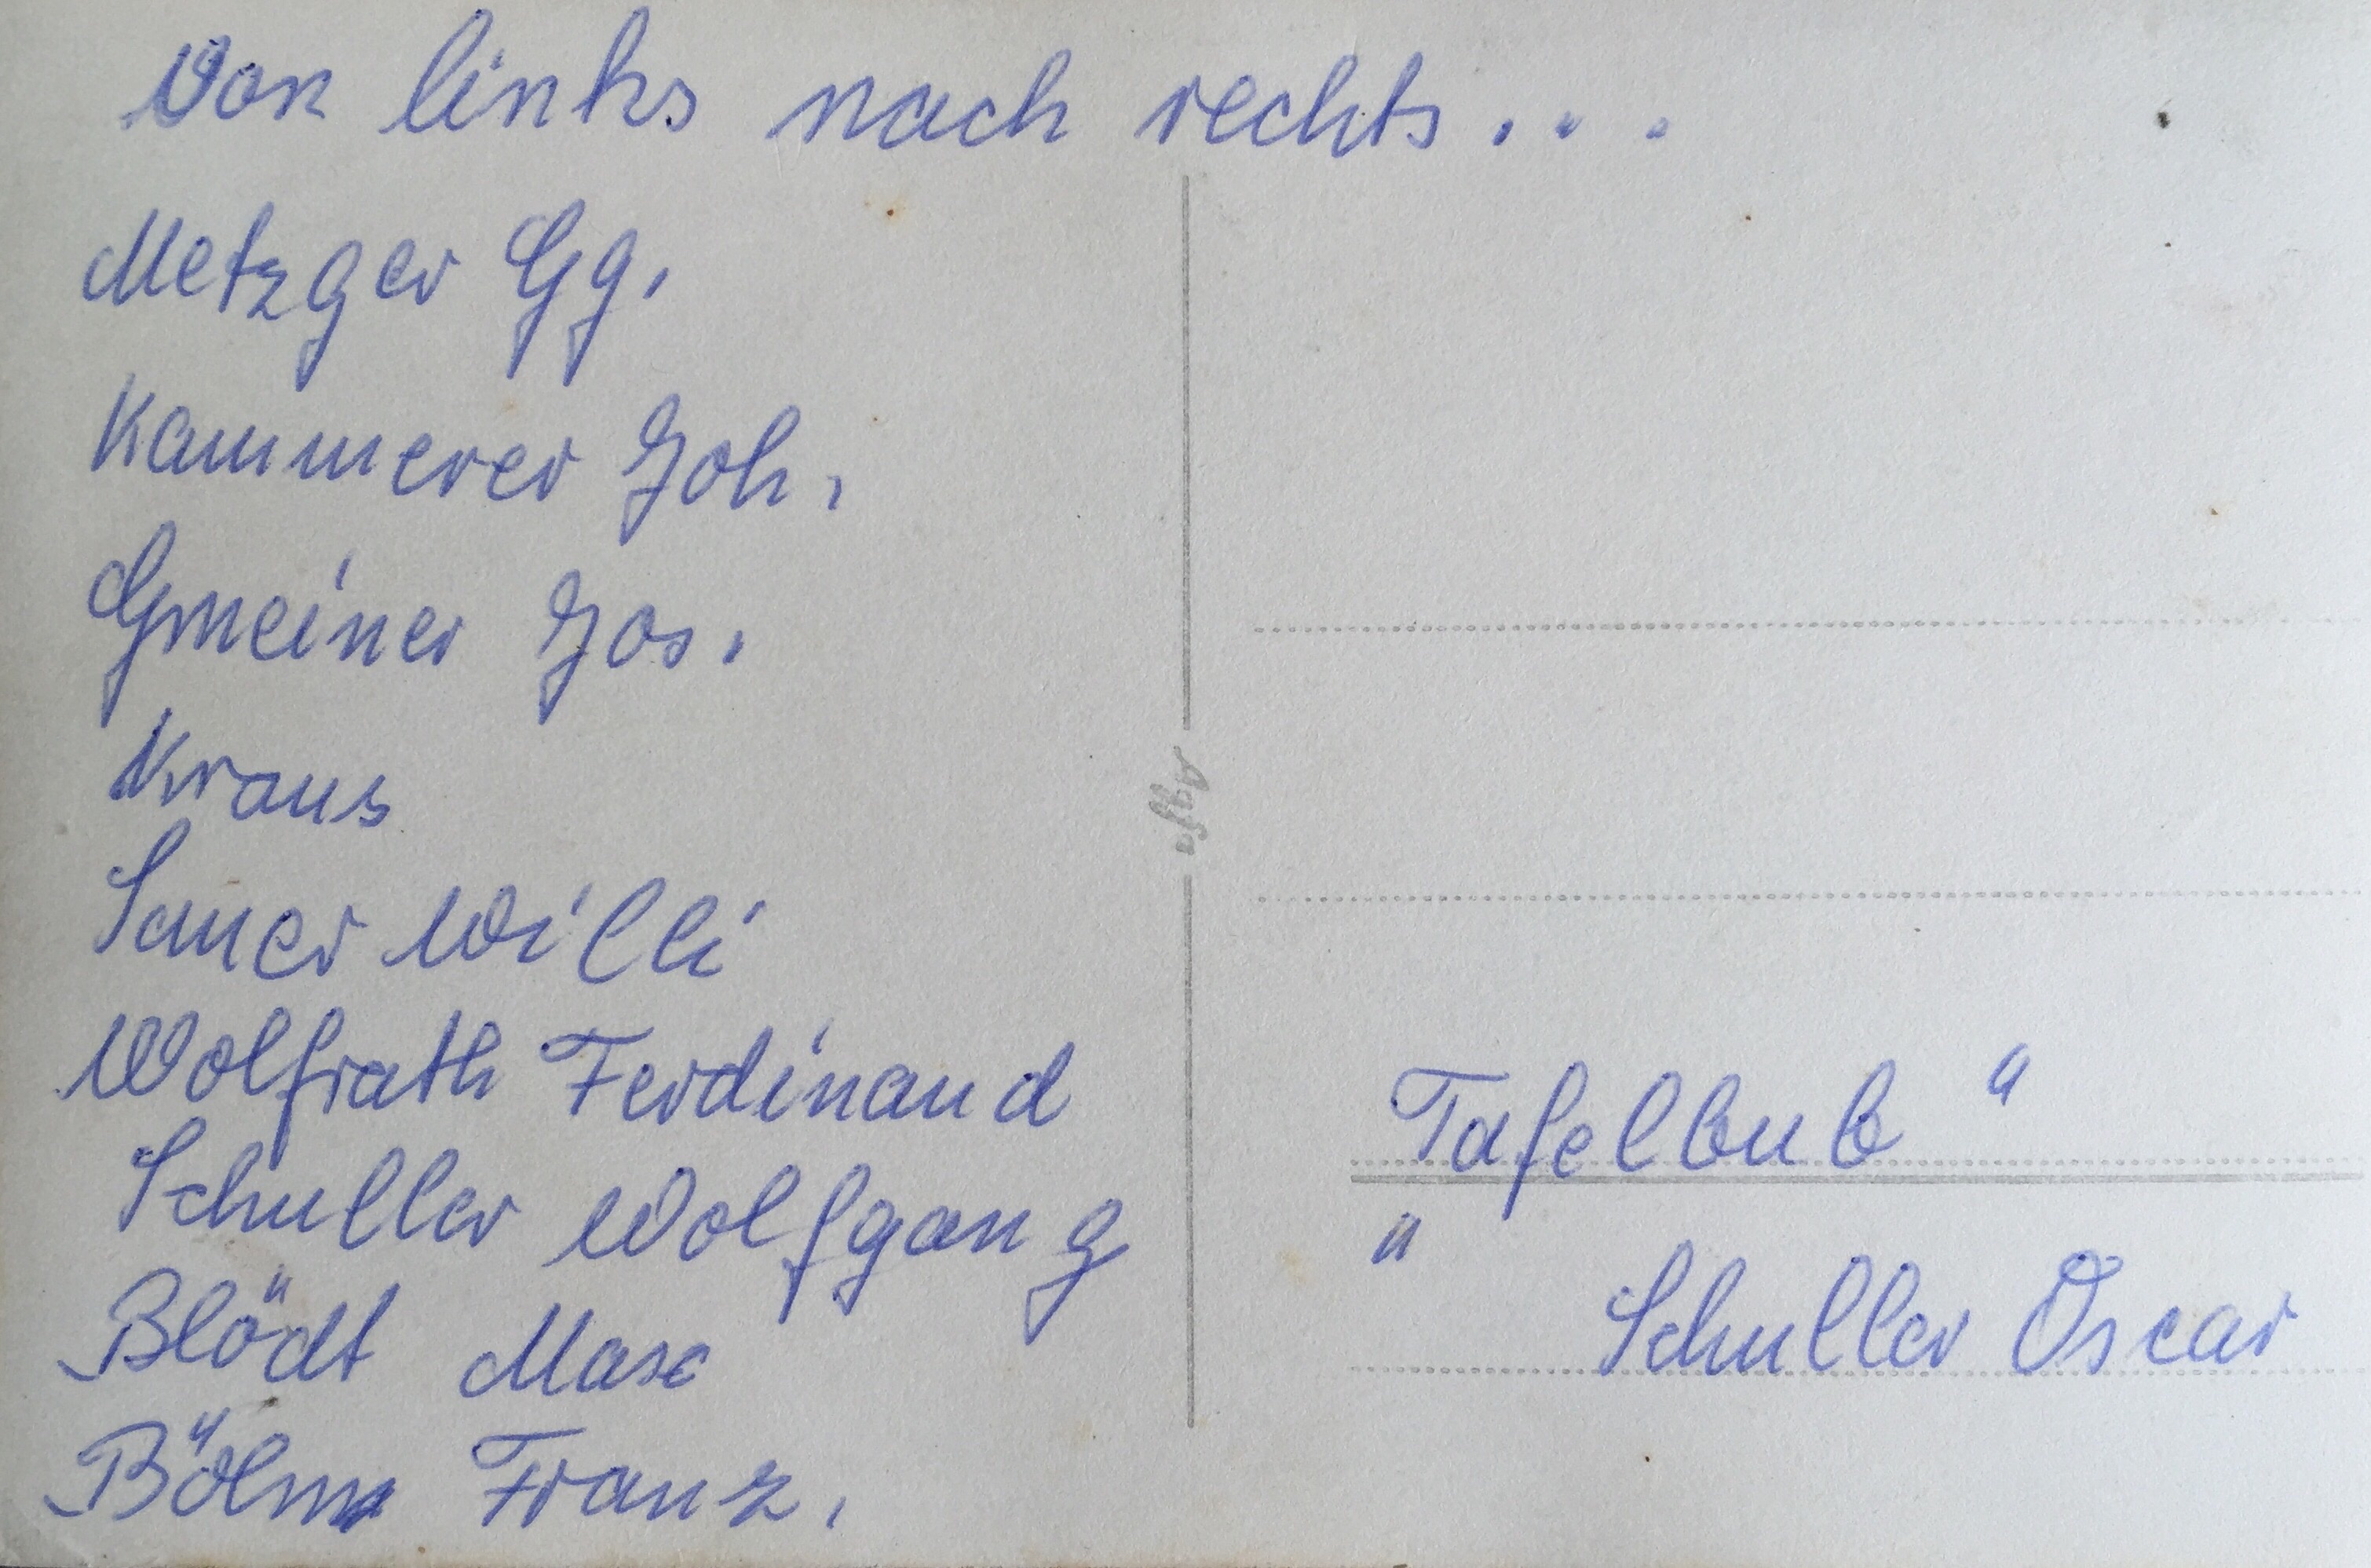 Von links nach rechts...
Metzger Gg.
Kammerer Joh.
Gmeiner Jos.
Kraus
Sauer Willi
Wolfrath Ferdinand
Schuller Wolfgang
Blödt Max
Böhm Franz.
Agfa
Tafelbub "
" Schuller Oscar